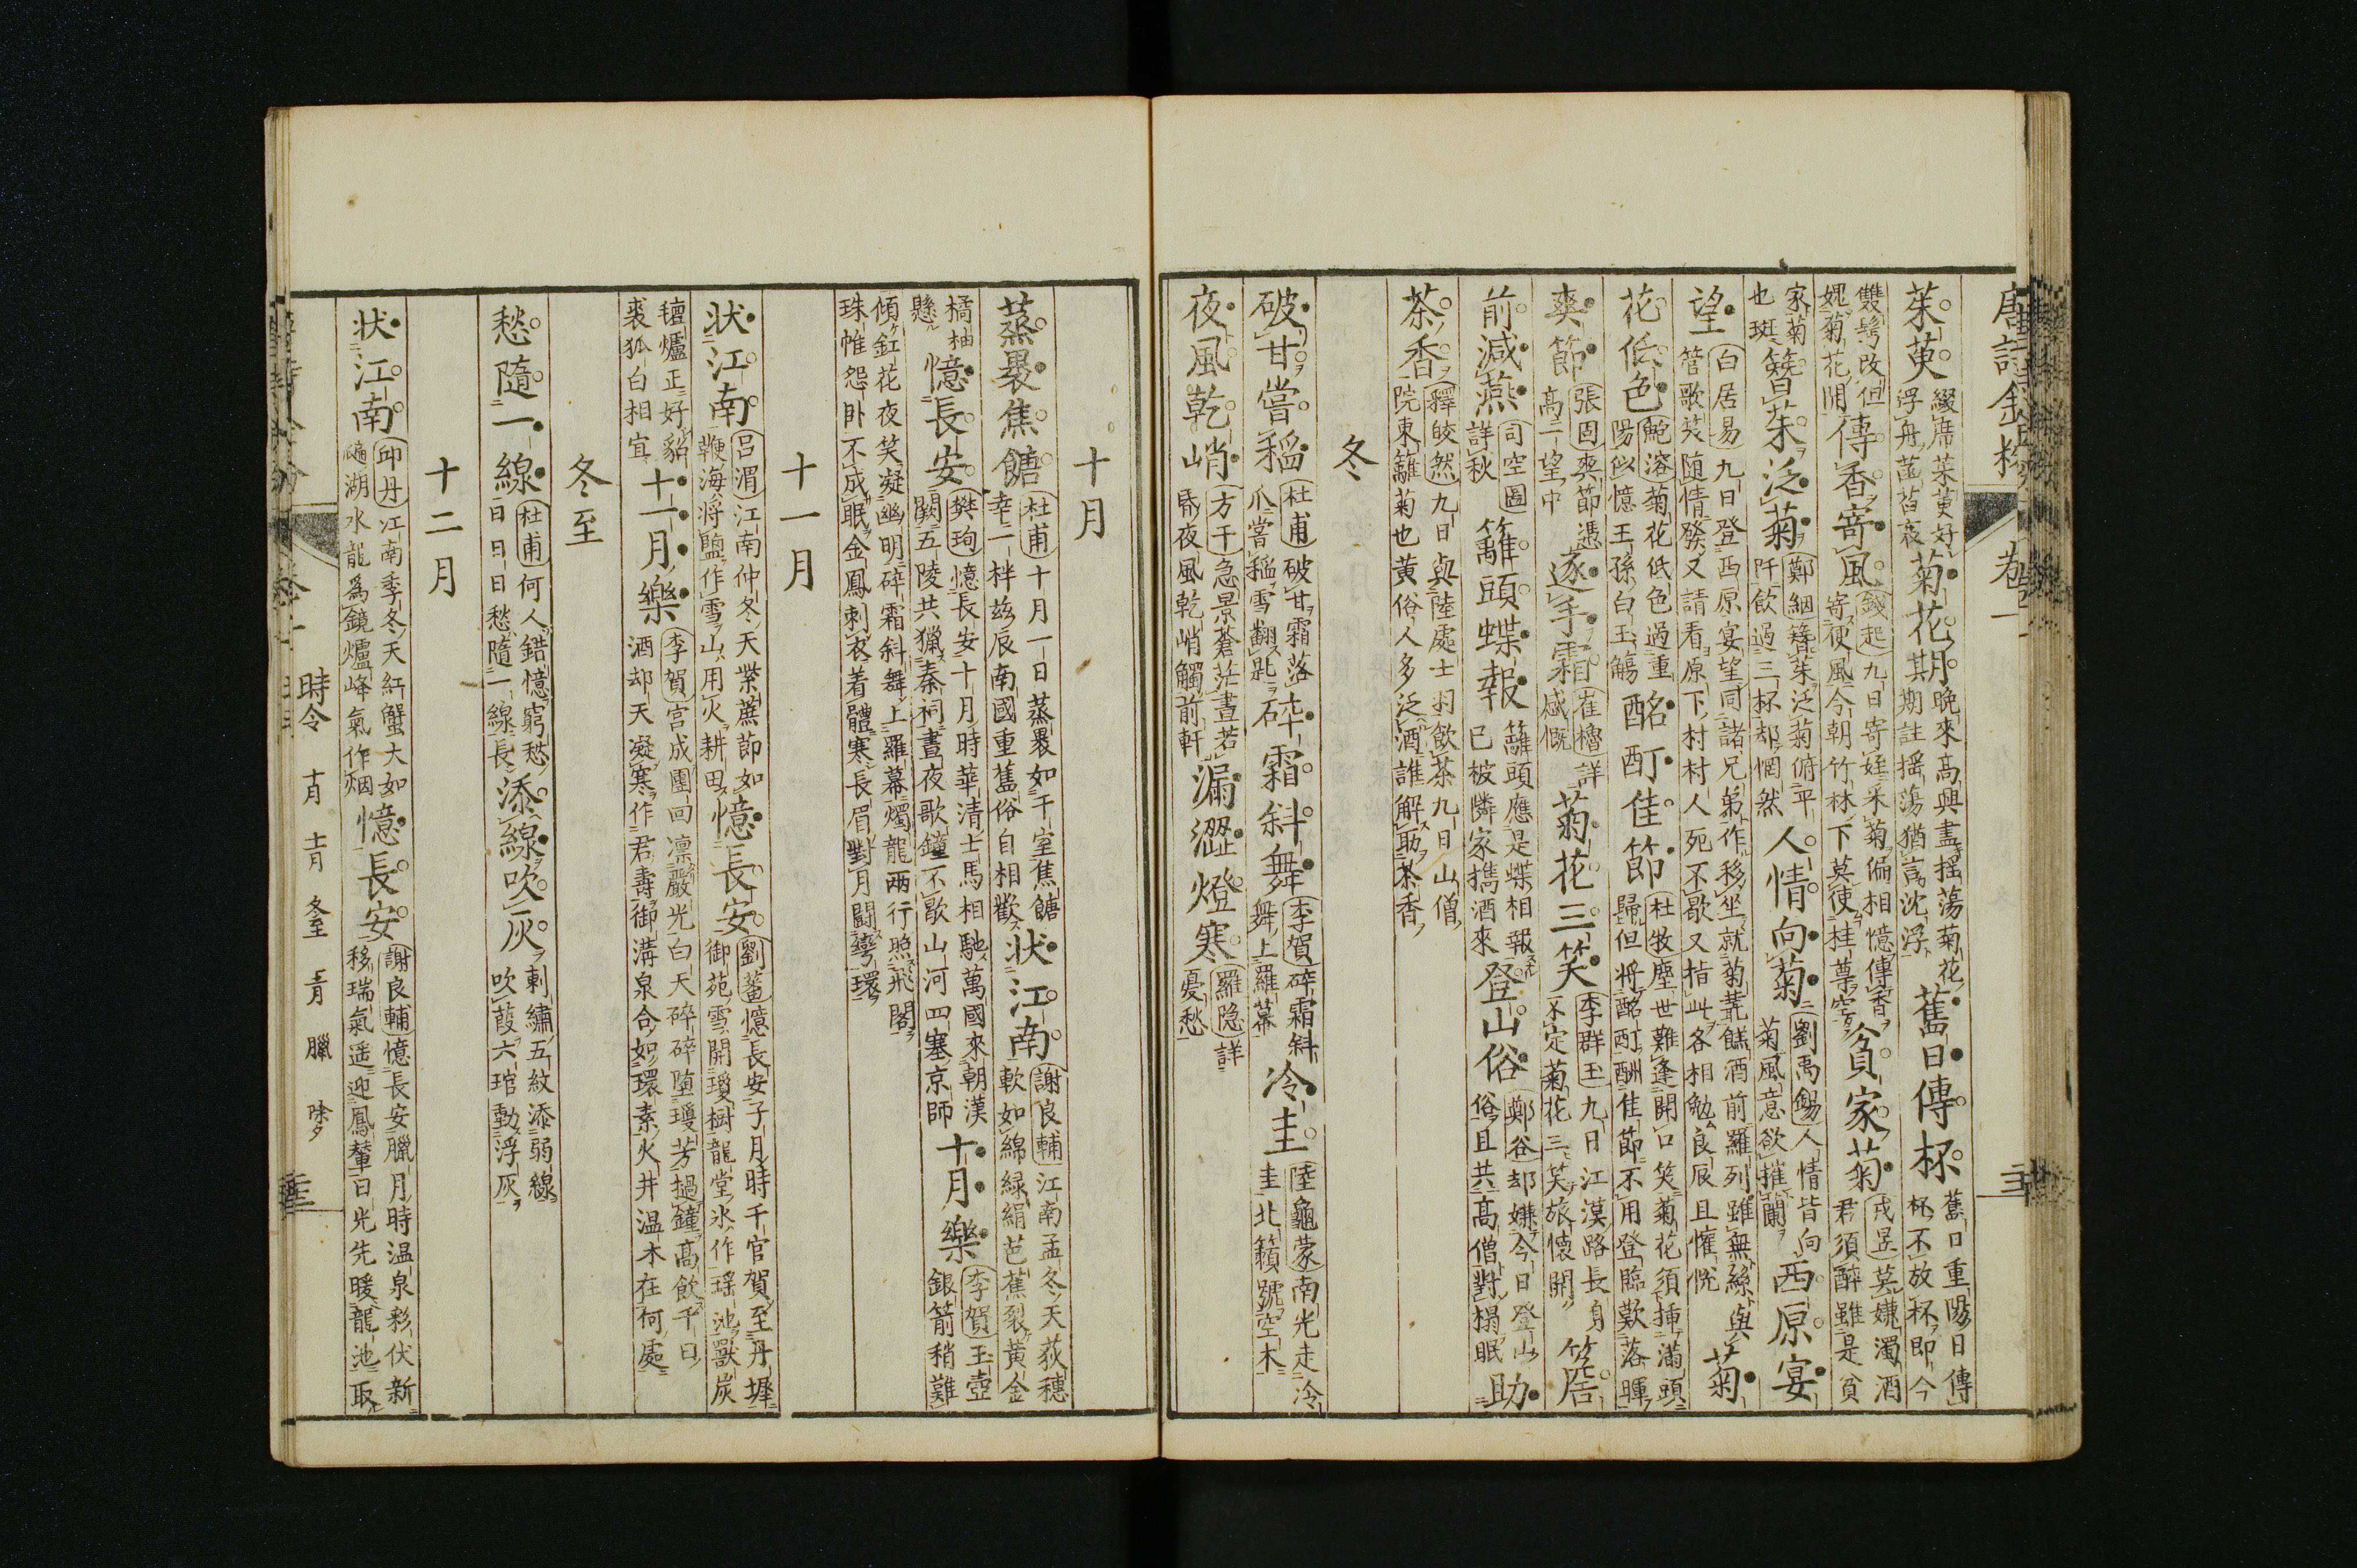 唐詩金粉 卷一
茱萸 綴席茱萸好浮舟菡萏衰 菊花期 晚來高興盡搖蕩菊花期期註搖蕩猶言沈浮 舊日傳杯 舊日重陽日傳杯不放杯即今
雙鬢改但媿菊花開 傳香寄風 錢起九日寄姪采菊偏相憶傳香寄便風今朝竹林下莫使桂尊空 貧家菊 戎昱莫嫌濁酒君須醉雖是貧
家菊也斑 簪茱泛菊 鄭絪簪茱泛菊俯平阡飲過三杯却惘然 人情向菊 劉禹錫人情皆向菊風意欲摧蘭 西原宴
望 白居易九日登西原宴望同諸兄弟作移坐就菊叢餻酒前羅列雖無絲與管歌笑隨情發又請看原下村村人死不歇又指此各相勉良辰且懽悅 菊
花低色 鮑溶菊花低色過重陽似憶王孫白玉觴 酩酊佳節 杜牧塵世難逢開口笑菊花須插滿頭歸但將酩酊酬佳節不用登臨歎落暉
爽節 張固爽節憑高一望中 逐手霜 崔櫓詳感慨 菊花三笑 李群玉九日江漢路長身不定菊花三笑旅懷開 
前減燕 司空圖詳秋 籬頭蝶報 籬頭應是蝶相報已被隣家携酒來 登山俗 鄭谷却嫌今日登山俗且共高僧對榻眠 助
茶香 釋皎然九日與陸處士羽飲茶九日山僧院東籬菊也黄俗人多泛酒誰解助茶香
冬
破甘嘗稻 杜甫破甘霜落爪嘗稻雪翻匙 碎霜斜舞 李賀碎霜斜舞上羅幕 冷圭 陸龜蒙南光走冷圭北籟號空木
夜風乾峭 方干急景蒼茫晝若昏夜風乾峭觸前軒 漏澀燈寒 羅隐詳憂愁
十月
蒸褁焦餹 杜甫十月一日蒸褁如千室焦餹幸一柈兹辰南國重舊俗自相歡 狀江南 謝良輔江南孟冬天荻穗軟如綿緑絹芭蕉裂黄金
橘柚懸 憶長安 樊珣憶長安十月時華清士馬相馳萬國來朝漢闕五陵共獵秦祠晝夜歌鐘不歇山河四塞京師 十月樂 李賀玉壺銀箭稍難
傾釭花夜笑凝幽明碎霜斜舞上羅幕燭龍兩行照飛閣珠帷怨卧不成眠金鳳刺衣着體寒長眉對月鬭彎環
十一月
狀江南 吕渭江南仲冬天紫蔗節如鞭海將鹽作雪山用火耕田 憶長安 劉蕃憶長安子月時千官賀至丹墀御苑雪開瓊樹龍堂氷作瑶池獸炭
氊爐正好貂裘狐白相宜 十一月樂 李賀宫成團回凛嚴光白天碎碎堕瓊芳撾鐘高飲千日酒却天凝寒作君壽御溝泉合如環素火井温水在何處
冬至
愁隨一線 杜甫何人錯憶窮愁日日日愁隨一線長 添線吹灰 刺繡五紋添弱線吹葭六琯動浮灰
十二月
狀江南 邱丹江南季冬天紅蟹大如䲔湖水龍爲鏡爐峰氣作烟 憶長安 謝良輔憶長安臘月時温泉彩伏新移瑞氣遥迎鳳輦日光先暖龍池取
時令 十月 十一月 冬至 十二月 臘 除夕